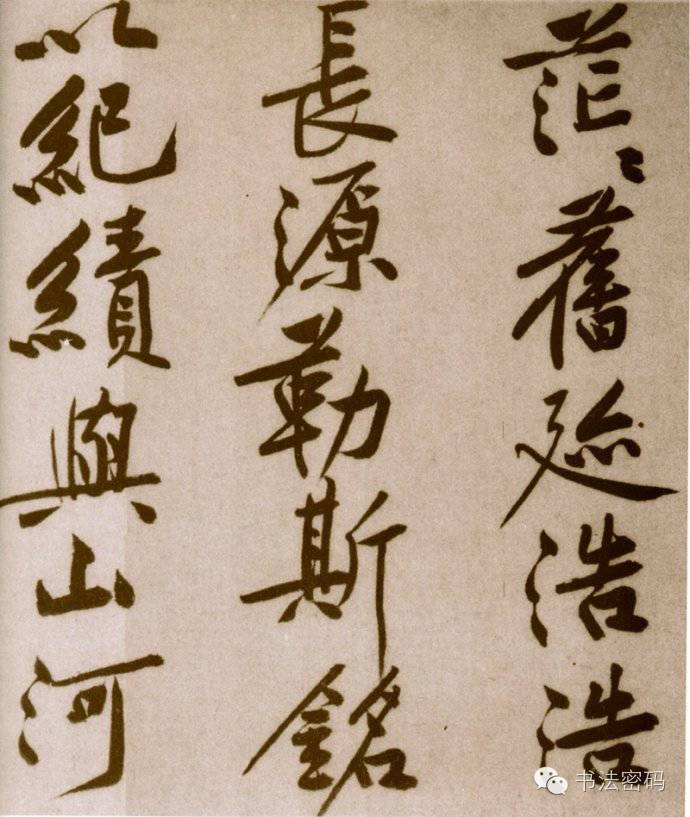 茫〻舊迹浩浩
長源勒斯銘
以紀績與山河
书法密码